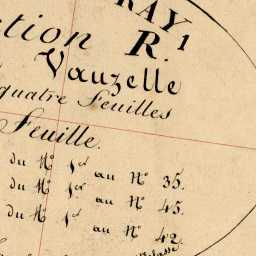 RAY 1
ction R.
Vauzelle
quatre feuilles
Feuille.
du N° 1er au N° 35.
du N° 1er au N° 45.
du N° 1er au N° 42.